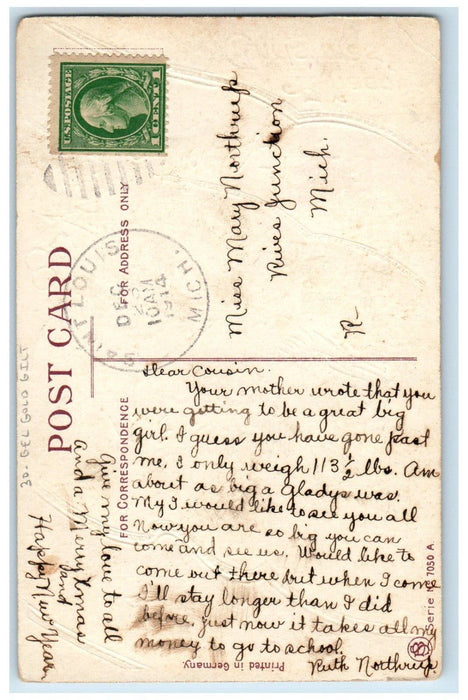 POST CARD
FOR ADDRESS ONLY
FOR CORRESPONDENCE
U.S. POSTAGE
1 CENT 1
SAINT LOUIS
MICH.
DEC
10 AM
1914
Miss Mary Northrup
Rives Junction
Mich.
R-
Dear Cousin.
Your mother wrote that you
were getting to be a great big
girl. I guess you have gone past
me. I only weigh 113 1/2 lbs. Am
about as big a Gladys was.
My I would like to see you all
Now you are so big you can
come and see us. Would like to
come out there but when I come
I'll stay longer than I did
before. just now it takes all my
money to go to school.
Ruth Northrup
Give my love to all
and a Merry Xmas
and
Happy New Year
3D. GEL GOLD GILT
Printed in Germany.
Serie No 7050 A
B